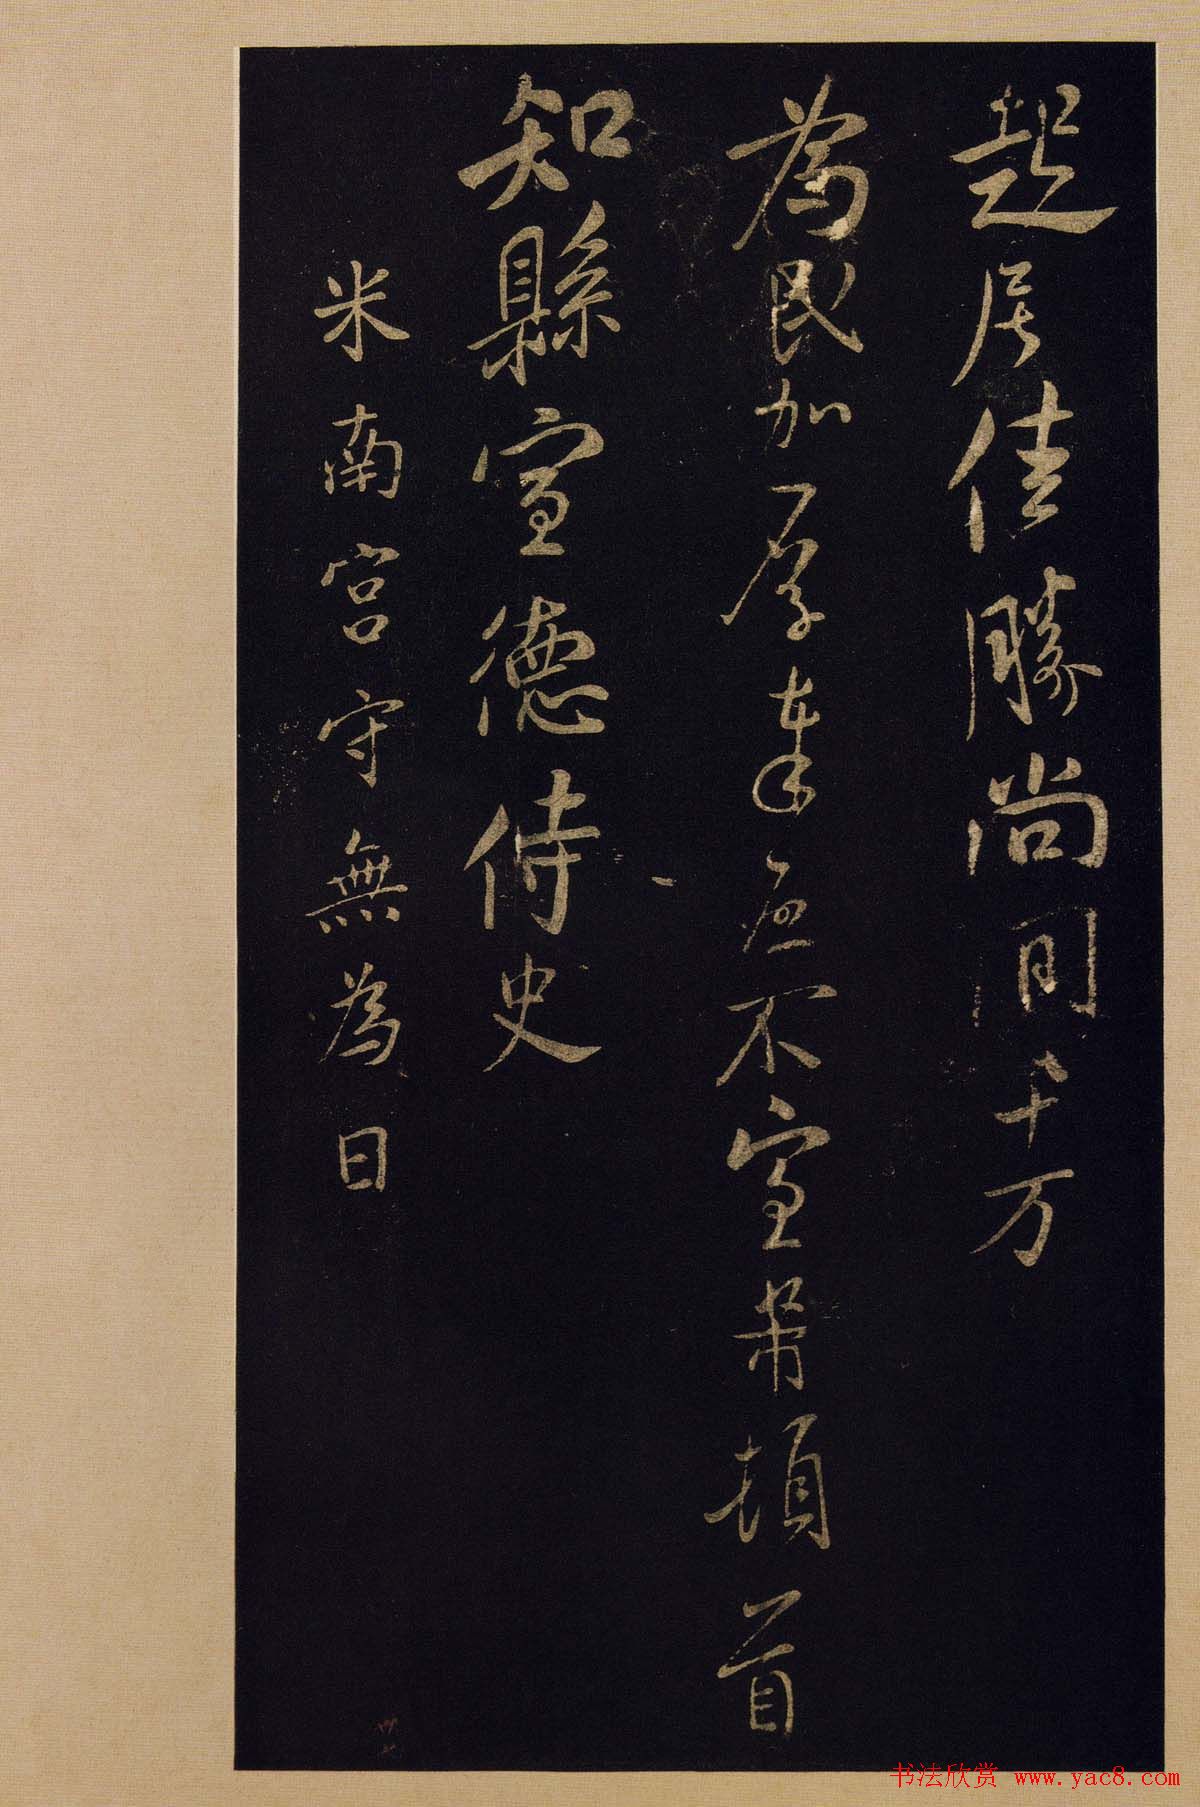 起居佳勝尚間千万
為民加厚奉不宣芾頓首
知縣宣德侍史
米南宮守無為日
书法欣赏 www.yac8.com